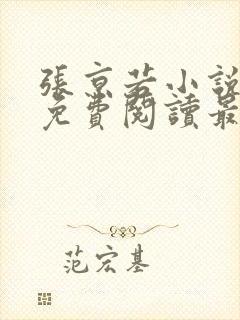 張京若小說
免費閱讀最
范宏基